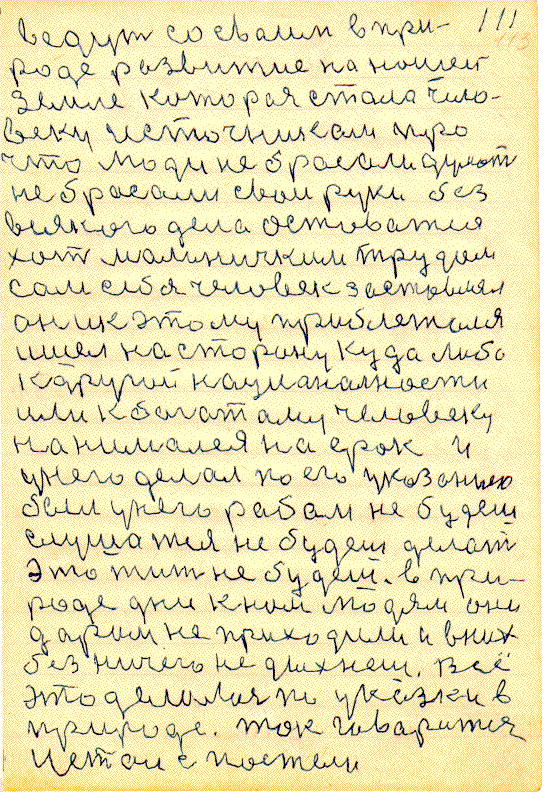 ведут со сваим в при- 111
роде развитие на нашей 113
Земле которая стала чило-
веку источникам про
что люди не брасали думат
не брасали свои руки без
всякого дела оставатся
хот маленичким трудом
сам себя человек заставлял
он ик этому приблежался
ишел на сторону куда либо
к другой нацианалности
или к богатаму человеку
нанимался на срок и
унего делал по его указанию
был унего рабам не будеш
слушатся не будеш делат
это жит не будеш. в при-
роде дни к ним людям они
даром не приходили и в них
без ничего не дыхнеш. Всё
это делалося по указки в
природе. так гаварится
Устаи с постели